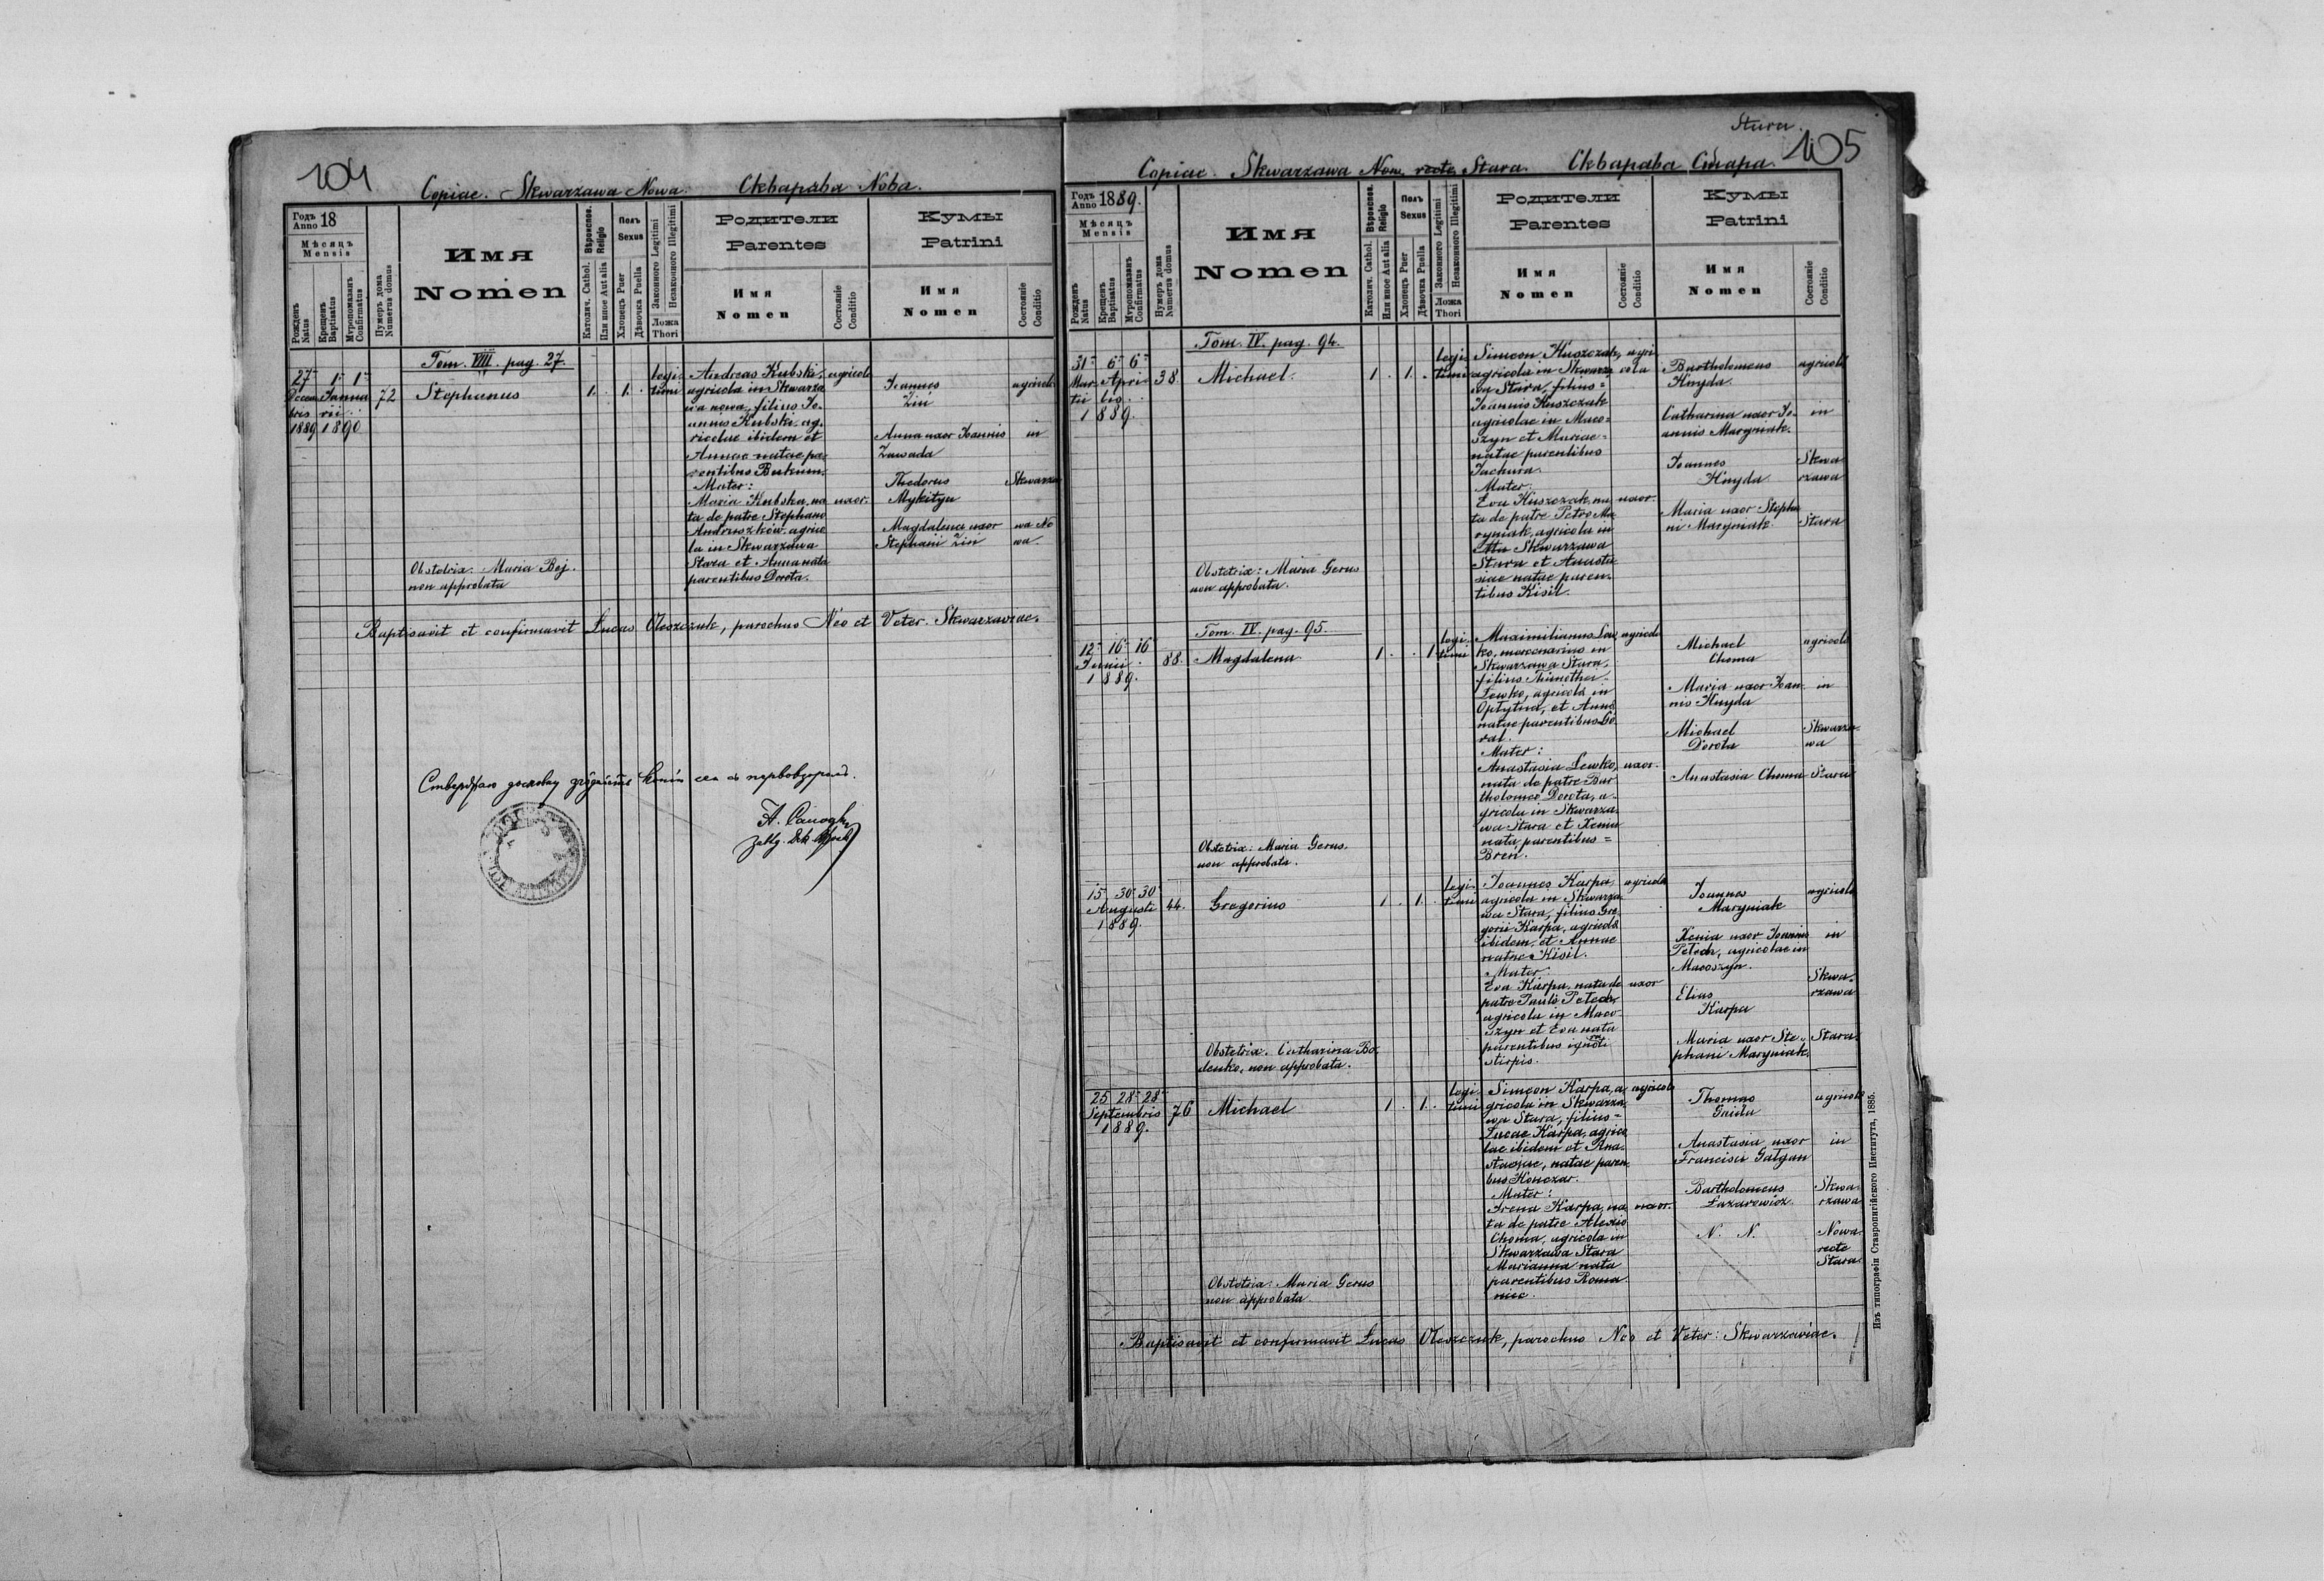 104
Copiae. Skwarzawa Nowa. Сквара̂ва Нова.
Годъ
Anno 18
Мѣсяцъ
Mensis
Рожденъ
Natus
Крещенъ
Baptisatus
Мѵропомазанъ
Confirmatus
Нумеръ дома
Numerus domus
Имя
Nomen
Вѣроиспов.
Religio
Католич. Cathol.
Или иное Aut alia
Полъ
Sexus
Хлопецъ Puer
Дѣвочка Puella
Законного Legitimi
Незаконного Illegitimi
Ложа
Thori
Родители
Parentes
Имя
Nomen
Состояніе
Conditio
Кумы
Patrini
Имя
Nomen
Состояніе
Conditio
Tom. VIII. pag. 27.
27 1 1
Decem Janua
bris rii
1889 1890
72
Stephanus
1. . 1. .
legi-
timi
Andreas Kubski,
agricola in Skwarza
wa nowa, filius Jo-
annis Kubski, ag-
ricolae ibidem et
Annae natae pa-
rentibus
Mater:
Maria Kubska, na
ta de patre Stephano
Andruszków, agrico
la in Skwarzawa
Stara et Anna nata
parentibus Dorota.
agricola
uxor.
Joannes
Ziń
Anna uxor Joannis
Zawada
Theodorus
Mykityn
Magdalena uxor
Stephani Ziń
agricola
in
Skwarza
wa No
wa.
Obstetrix. Maria Bej.
non approbata
Baptisavit et confirmavit Lucas Oleszczuk, parochus Neo et Veter. Skwarzawiae.
105
Stara.
Copiae. Skwarzawa Nowa recte Stara. Скварава Стара.
Годъ
Anno 1889.
Мѣсяцъ
Mensis
Рожденъ
Natus
Крещенъ
Baptisatus
Мѵропомазанъ
Confirmatus
Нумеръ дома
Numerus domus
Имя
Nomen
Вѣроиспов.
Religio
Католич. Cathol.
Или иное Aut alia
Полъ
Sexus
Хлопецъ Puer
Дѣвочка Puella
Законного Legitimi
Незаконного Illegitimi
Ложа
Thori
Родители
Parentes
Имя
Nomen
Состояніе
Conditio
Кумы
Patrini
Имя
Nomen
Состояніе
Conditio
Tom. IV. pag. 94.
31 6 6
Mar- Apri-
tii lis
1889.
38
Michael.
1 . 1. .
legi-
timi
Simeon Kuszczak,
agricola in Skwarza
wa Stara, filius=
Joannis Kuszczak
agricolae in Maco-
szyn et Mariae=
natae parentibus
Jachura.
Mater:
Eva Kuszczak, na
ta de patre Petro Ma
ryniak, agricola in
Skwarzawa
Stara et Anasta
siae natae paren-
tibus Kisil.
agri
cola
uxor.
Bartholomeus
Knyda.
Catharina uxor Jo-
annis Maryniak.
Joannes
Knyda
Maria uxor Stepha
ni Maryniak
agricola
in
Skwa
rzawa
Stara
Obstetrix: Maria Gerus
non approbata.
Tom. IV. pag. 95.
12 16 16
Junii
1889.
88.
Magdalena
1 . . 1
legi-
timi
Maximilianus Lew
ko, mercenarius in
Skwarzawa Stara,
filius Timothei
Lewko, agricola in
et Anna
natae parentibus Go
ral.
Mater:
Anastasia Lewko,
nata de patre Bar
tholomeo Dorota, a-
gricola in Skwarza-
wa Stara et Xenia
nata parentibus=
Breń.
agricola
uxor.
Michael
Choma
Maria uxor Joan-
nis Knyda
Michael
Dorota
Anastasia Choma
agricola
in
Skwarza-
wa
Stara
Obstetrix: Maria Gerus.
non approbata.
15 30 30
Augusti
1889.
44.
Gregorius
1 . 1. .
legi-
timi
Joannes Karpa,
agricola in Skwarza
wa Stara, filius Gre-
gorii Karpa, agricola
ibidem, et Annae
natae Kisil.
Mater
Eva Karpa, nata de
patre Paulo Petech,
agricola in Maco-
szyn et Eva nata
parentibus ignoti
stirpis.
agricola
uxor
Joannes
Maryniak
Xenia uxor Joannis
Petech, agricolae in
Macoszyn.
Elias
Karpa
Maria uxor Ste-
phani Maryniak
agricola
in
Skwa-
rzawa
Stara
Obstetrix. Catharina Bo
denko, non approbata.
25 28 28
Septembris
1889.
76
Michael
1 . 1. .
legi-
timi
Simeon Karpa, a-
gricola in Skwarza
wa Stara, filius=
Lucae Karpa, agrico
lae ibidem et Ana-
stasiae, natae paren-
bus Konczar.
Mater:
Irena Karpa, na
ta de patre Alexio
Choma, agricola in
Skwarzawa Stara
Marianna nata
parentibus Roma
niec.
agricola
uxor.
Thomas
Gnida
Anastasia uxor
Francisci Gatgan
Bartholomeus
Lazarowicz
N. N.
agricola
in
Skwa-
rzawa
Nowa
recte
Stara
Obstetrix: Maria Gerus
non approbata.
Baptisavit et confirmavit Lucas Oleszczuk, parochus Neo et Veter: Skwarzawiae.
Изъ типографіи Ставропигійского Института, 1885.